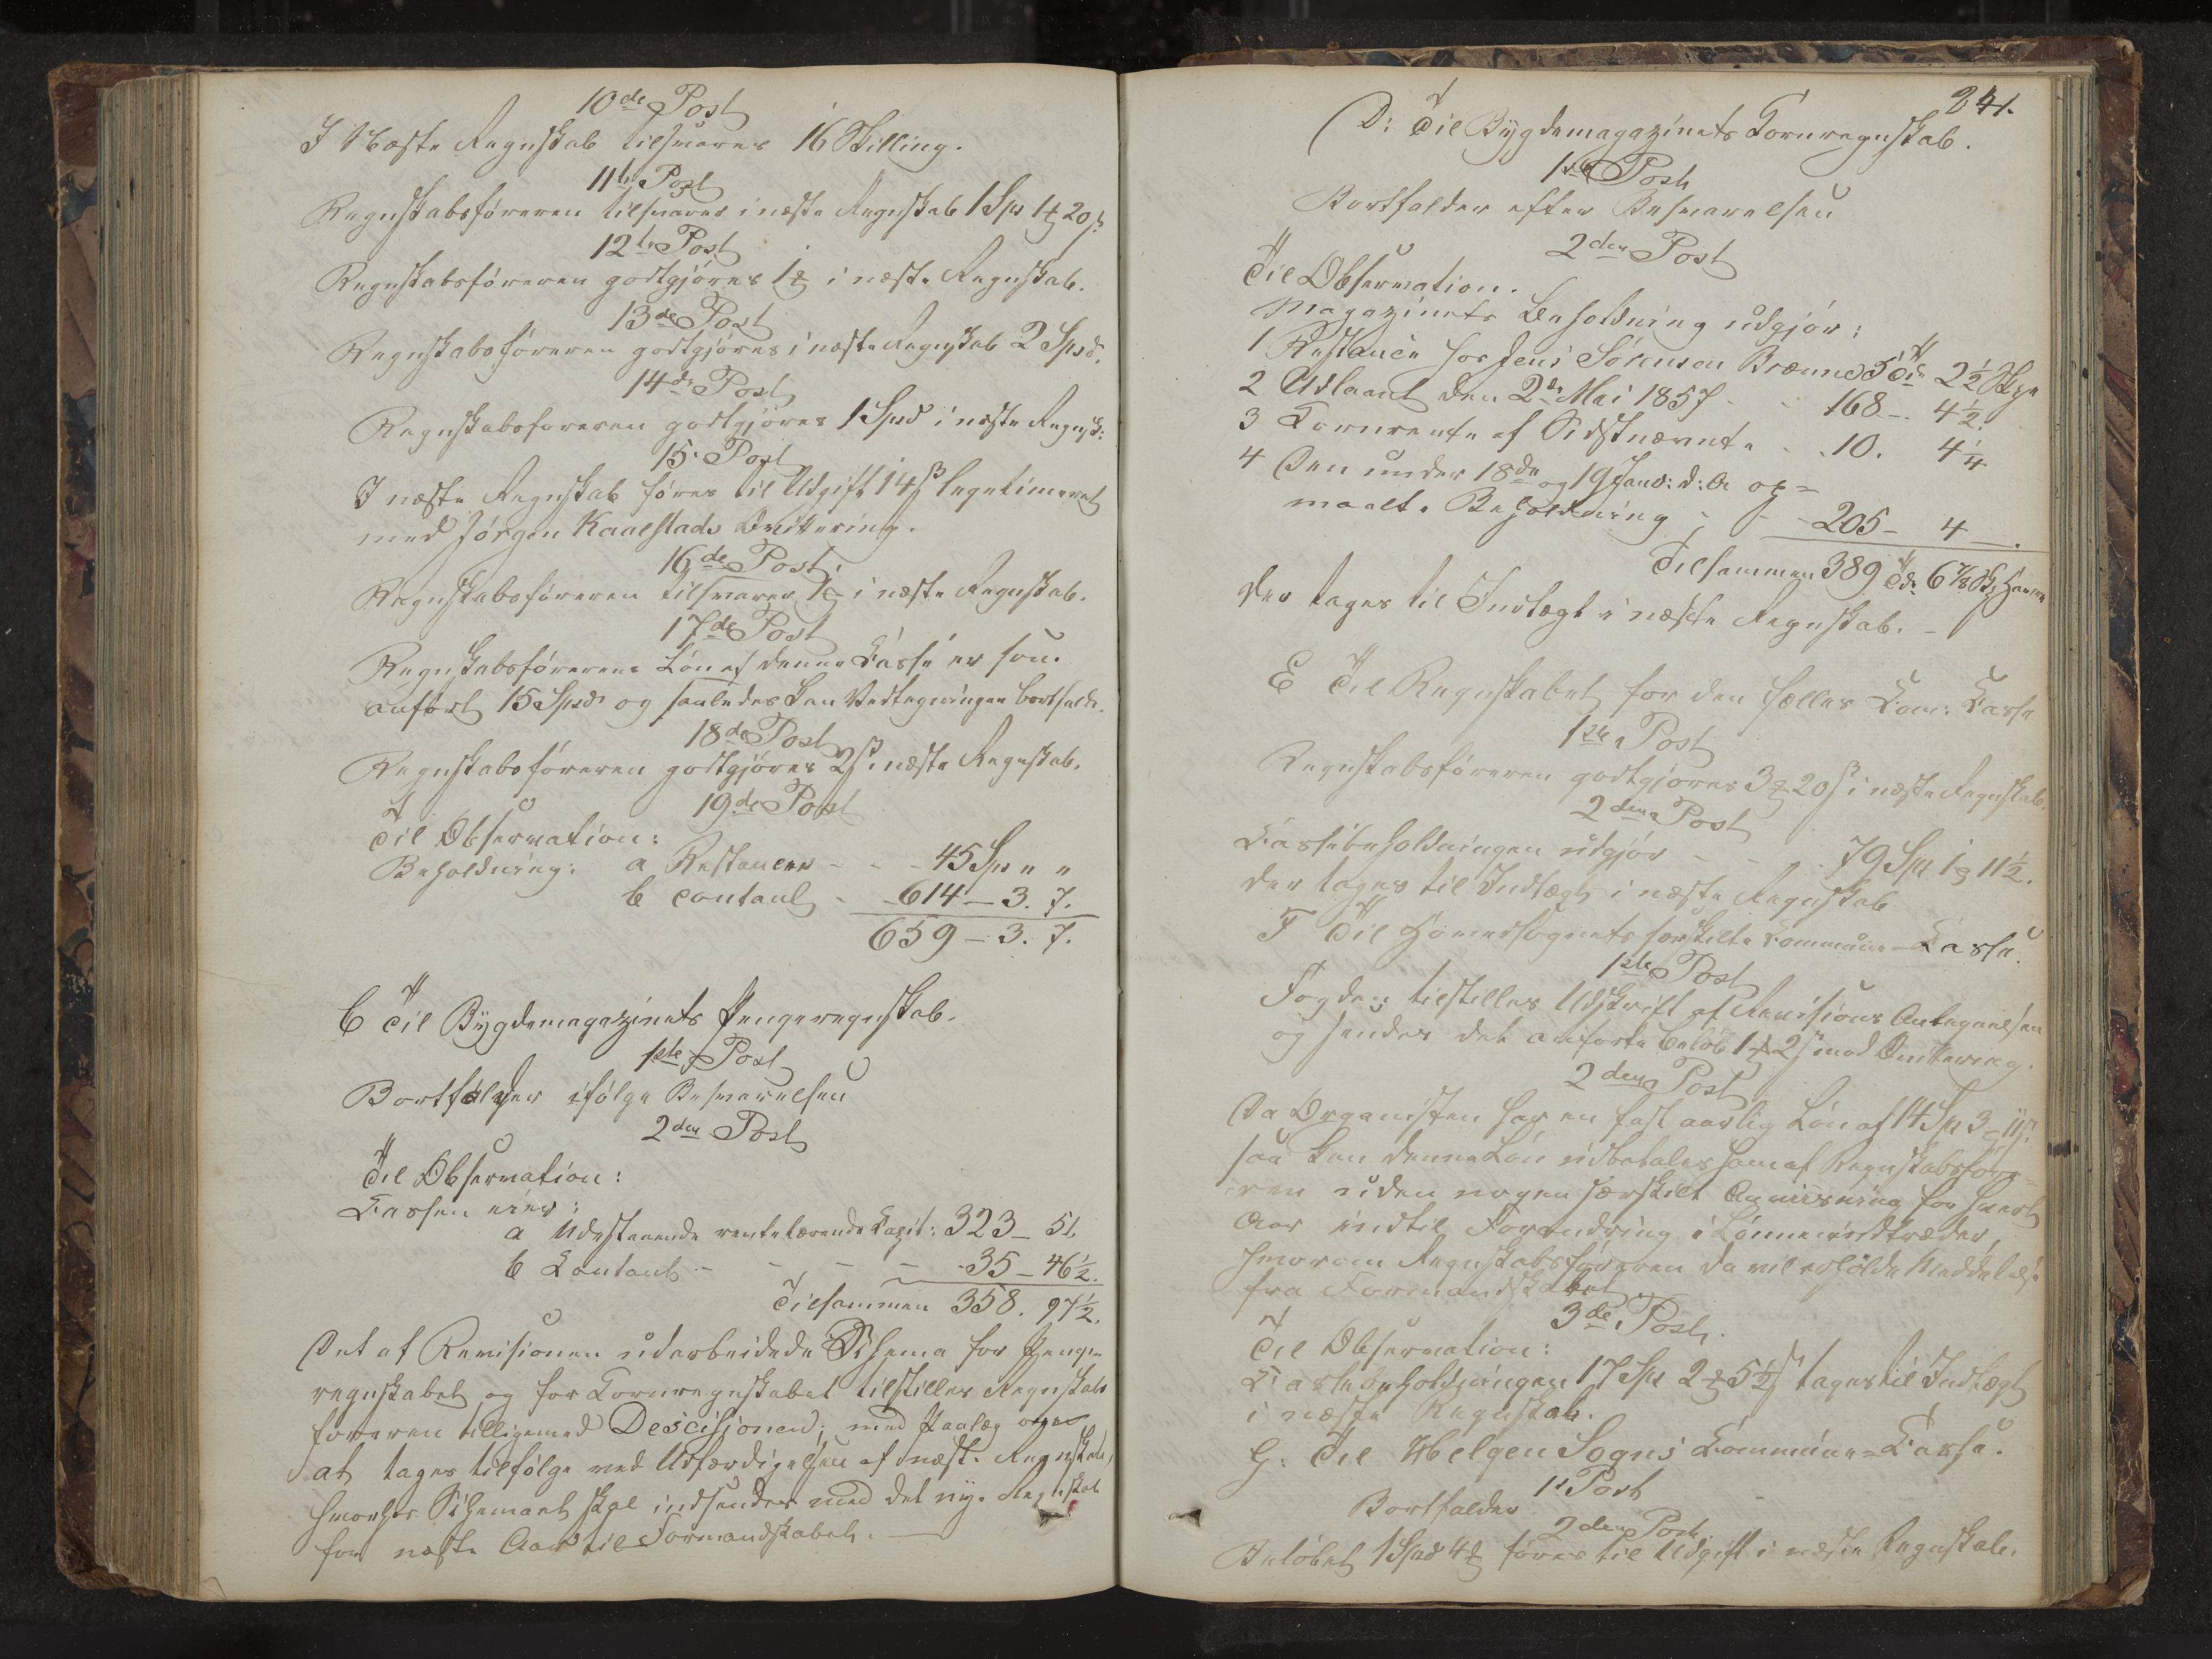 10de Post
I Næste Regnskab tilsvares 16 Skilling.
11te Post
Regnskabsføreren tilsvares i næste Regnskab 1 Sps 1 ℔ 20 ß
12te Post
Regnskabsføreren godtgjøres 1 ℔ i næste Regnskab.
13de Post
Regnskabsføreren godtgjøres i næste Regnskab 2 Spd.
14de Post
Regnskabsføreren godtgjøres 1 Spd i næste Regnsk:
15. Post
I næste Regnskab føres til Udgift 14 ß legetimeret
med Jørgen Kaalstads Qvittering.
16de Post
Regnskabsføreren tilsvarer 1 ℔ i næste Regnskab.
17de Post
Regnskabsførerens Løn af denne Casse er kun
anført 15 Spd og saaledes kan Vedtegningen bortfalde.
18de Post
Regnskabsføreren godtgjøres 2 ß i næste Regnskab.
19de Post
Til Observation:
Beholdning: a Restancer - - 45 Sps " "
b contant - 614 - 3. 7.
659 - 3. 7.
C Til Bygdemagazinets Pengeregnskab.
1ste Post
Bortfalder ifølge Besvarelsen
2den Post
Til Observation:
Cassen eier:
a Udestaaende rentebærende Capit: 323 - 51.
b Contant - - - - 35 - 46½.
Tilsammen 358. 97½.
Det af Revisionen udarbeidede Schema for Penge
regnskabet og for Kornregnskabet tilstilles Regnskabs
føreren tilligemed Descisionen, med Paalæg om
at tages tilfølge ved Udfærdigelsen af næste Regnskab,
hvorhos Schemaet skal indsendes med det nye Regnskab
for næste Aar til Formandskabet.
241.
D: Til Bygdemagazinets Kornregnskab.
1ste Post
Bortfalder efter Besvarelsen
2den Post
Til Observation.
Magazinets Beholdning udgjør:
1 Restance hos Jens Sørensen Brænne 5 Td 2½ Skpr
2 Udlaant den 2de Mai 1857 - - 168 - 4½.
3 Kornrente af Sidstnævnte - - 10. 4¼
4 Den under 18de og 19 Janv: d: A op=
maalte Beholdning - - 205 - 4 -.
Tilsammen 389 Td 6⅞ Skp Havre
der tages til Indtægt i næste Regnskab. -
E Til Regnskabet for den fælles Com: Casse
1ste Post
Regnskabsføreren godtgjøres 3 ℔ 20 ß i næste Regnskab.
2den Post
Cassebeholdningen udgjør - - - 79 Spd 1 ℔ 11½.
der tages til Indtægt i næste Regnskab
F Til Hovedsognets særskilte Commune-Casse.
1ste Post
Fogden tilstilles Udskrift af Revisions Antegnelsen
og sendes det anførte Beløb 1 ℔ 2 ß mod Qvittering.
2den Post
Da Organisten har en fast aarlig Løn af 14 Spd 3 ℔ 11 ß
saa kan denne Løn udbetales ham af Regnskabsføre=
ren uden nogen særskilt Anviisning for hvert
Aar indtil Forandring i Lønnen indtræder,
hvorom Regnskabsføreren da vil erholde Meddelelse
fra Formandskabet
3de Post.
Til Observation:
Cassebeholdningen 17 Spd 2 ℔ 5½ ß tages til Indtægt
i næste Regnskab.
G. Til Helgen Sogns Commune=Casse.
1s Post
Bortfalder
2den Post.
Beløbet 1 Spd 4 ℔ føres til Udgift i næste Regnskab.